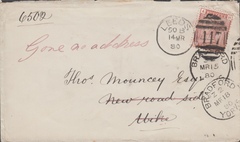 6502
Gone no address
LEEDS
14 MR
80
117
BRADFORD
MR 15
80
Thos. Mouncey Esq
New road side
BRADFORD
MR 18
YORKS